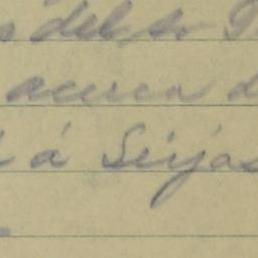 del Sr
acerca d
á Seijas